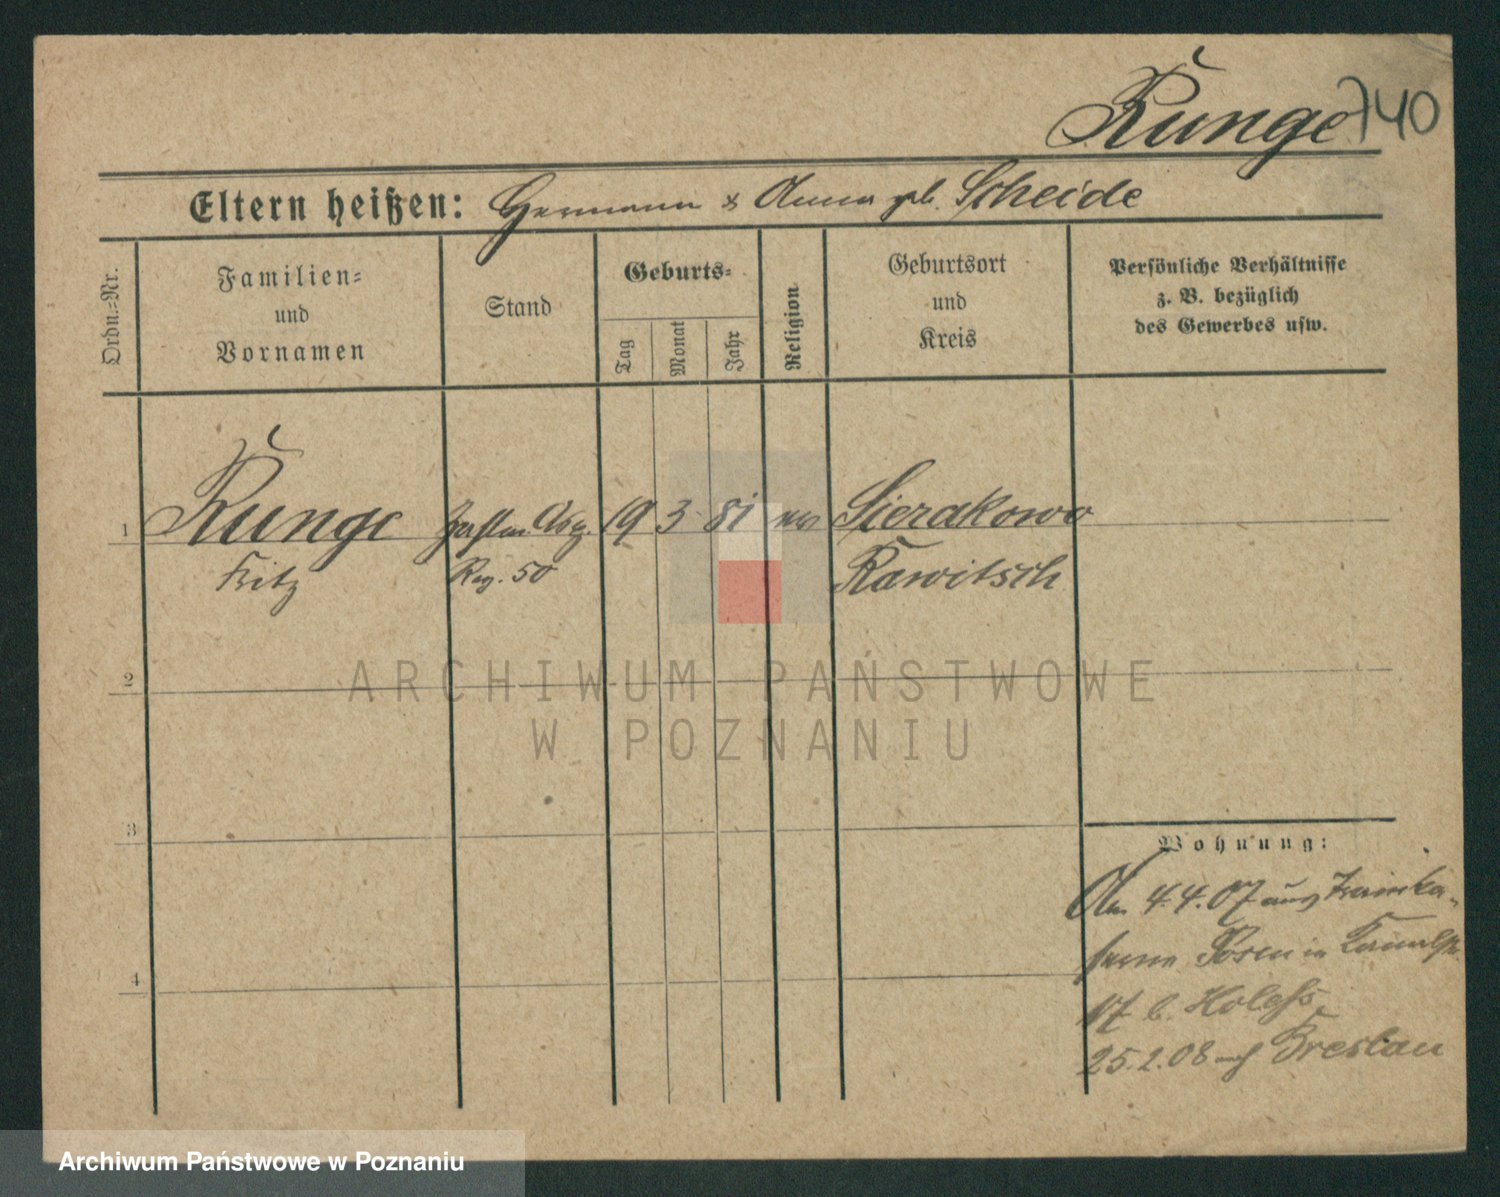 Runge 740
Eltern heißen: Hermann & Anna geb. Scheide
Ordn.=Nr.
Familien=
und
Vornamen
Stand
Geburts=
Tag
Monat
Jahr
Religion
Geburtsort
und
Kreis
Persönliche Verhältnisse
z. B. bezüglich
des Gewerbes usw.
1 Runge 19 3 81 Sierakowo
Fritz Reg. 50 Rawitsch
2
3
4
Wohnung:
Am 4.4.07 aus Trainka-
serne Posen in
17 b.
25.2.08 nach Breslau
ARCHIWUM PAŃSTWOWE
W POZNANIU
Archiwum Państwowe w Poznaniu